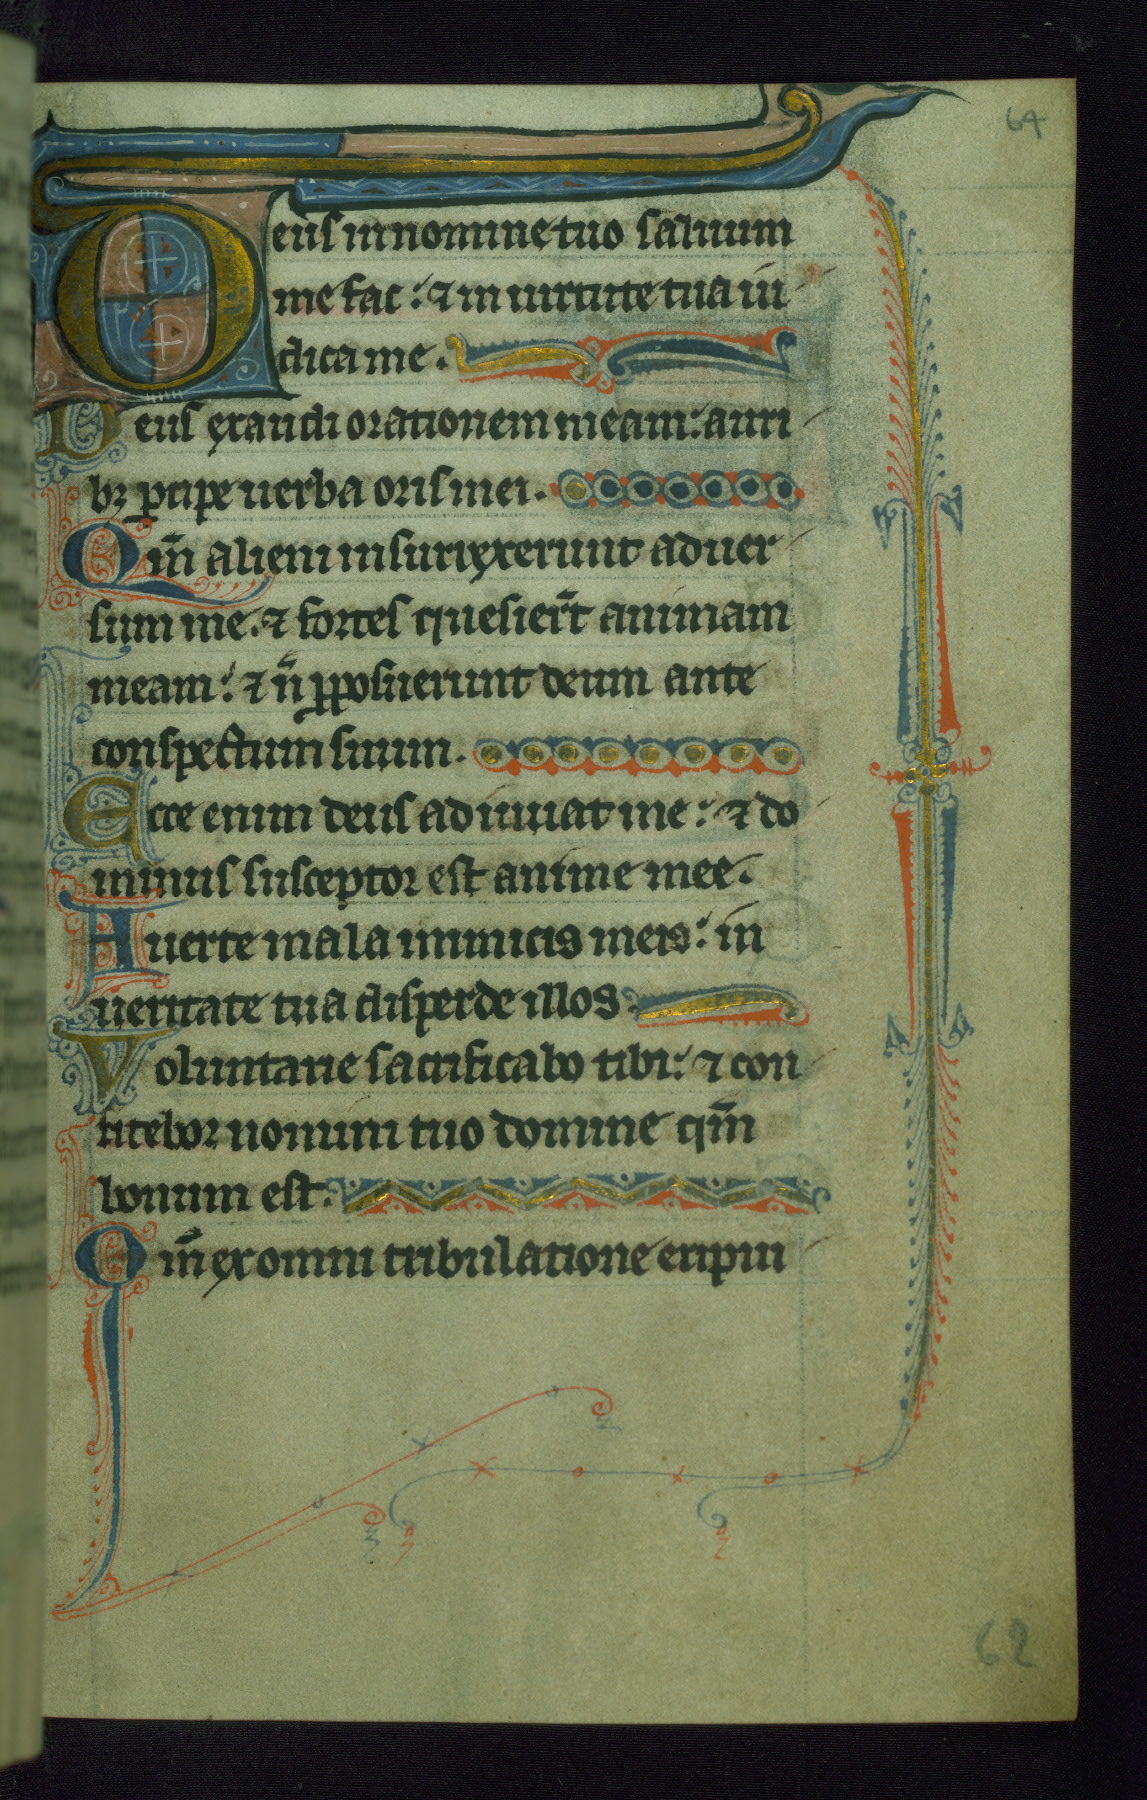 64
Deus in nomine tuo saluum
me fac: ⁊ in uirtute tua iu
dica me.
Deus exaudi orationem meam: auri
bꝫ ꝑcipe uerba oris mei.
Qm̄ alieni insurrexerunt aduer
sum me. ⁊ fortes quesier̄t animam
meam: ⁊ n̄ ꝓposuerunt deum ante
conspectum suum.
Ecce enim deus adiuuat me: ⁊ do
minus susceptor est anime mee.
Auerte mala inimicis meis: in
ueritate tua disperde illos.
Voluntarie sacrificabo tibi: ⁊ con
fitebor nomini tuo domine qm̄
bonum est.
Qm̄ ex omni tribulatione eripui
62